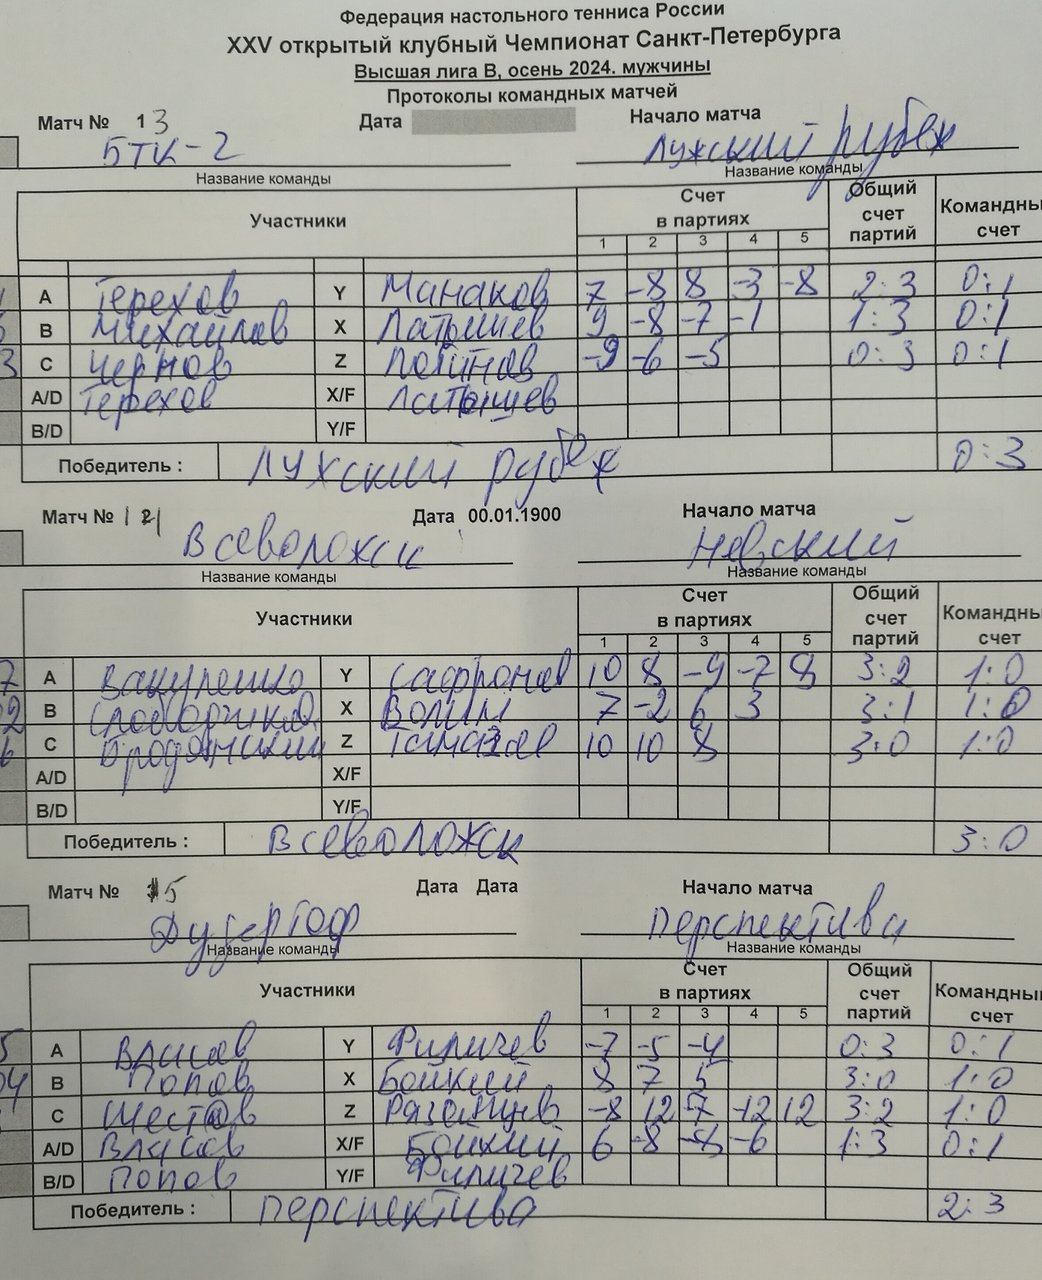 Федерация настольного тенниса России
XXV открытый клубный Чемпионат Санкт-Петербурга
Высшая лига В, осень 2024. мужчины
Протоколы командных матчей
Матч № 13 Дата Начало матча
БТК-2 Лужский рубеж
Название команды Название команды
Участники Счет в партиях Общий счет партий Командны счет
1 2 3 4 5
A Терехов Y Манаков 7 -8 8 -3 -8 2:3 0:1
B Михайлов X Латышев 9 -8 -7 -1 1:3 0:1
3 C Чернов Z Логинов -9 -6 -5 0:3 0:1
A/D Терехов X/F Латышев
B/D Y/F
Победитель : Лужский рубеж 0:3
Матч № Дата 00.01.1900 Начало матча
Всеволожск Невский
Название команды Название команды
Участники Счет в партиях Общий счет партий Командны счет
1 2 3 4 5
7 A Y Сафронов 10 8 -9 -7 8 3:2 1:0
B X 7 -2 6 3 3:1 1:0
C Z 10 10 8 3:0 1:0
A/D X/F
B/D Y/F
Победитель : Всеволожск 3:0
Матч № 15 Дата Дата Начало матча
Дудергоф Перспектива
Название команды Название команды
Участники Счет в партиях Общий счет партий Командны счет
1 2 3 4 5
5 A Власов Y Филичев -7 -5 -4 0:3 0:1
B Попов X Бойкий 8 7 5 3:0 1:0
C Шестов Z Рязанцев -8 12 -7 -12 12 3:2 1:0
A/D Власов X/F Бойкий 6 -8 -8 -6 1:3 0:1
B/D Попов Y/F Филичев
Победитель : Перспектива 2:3